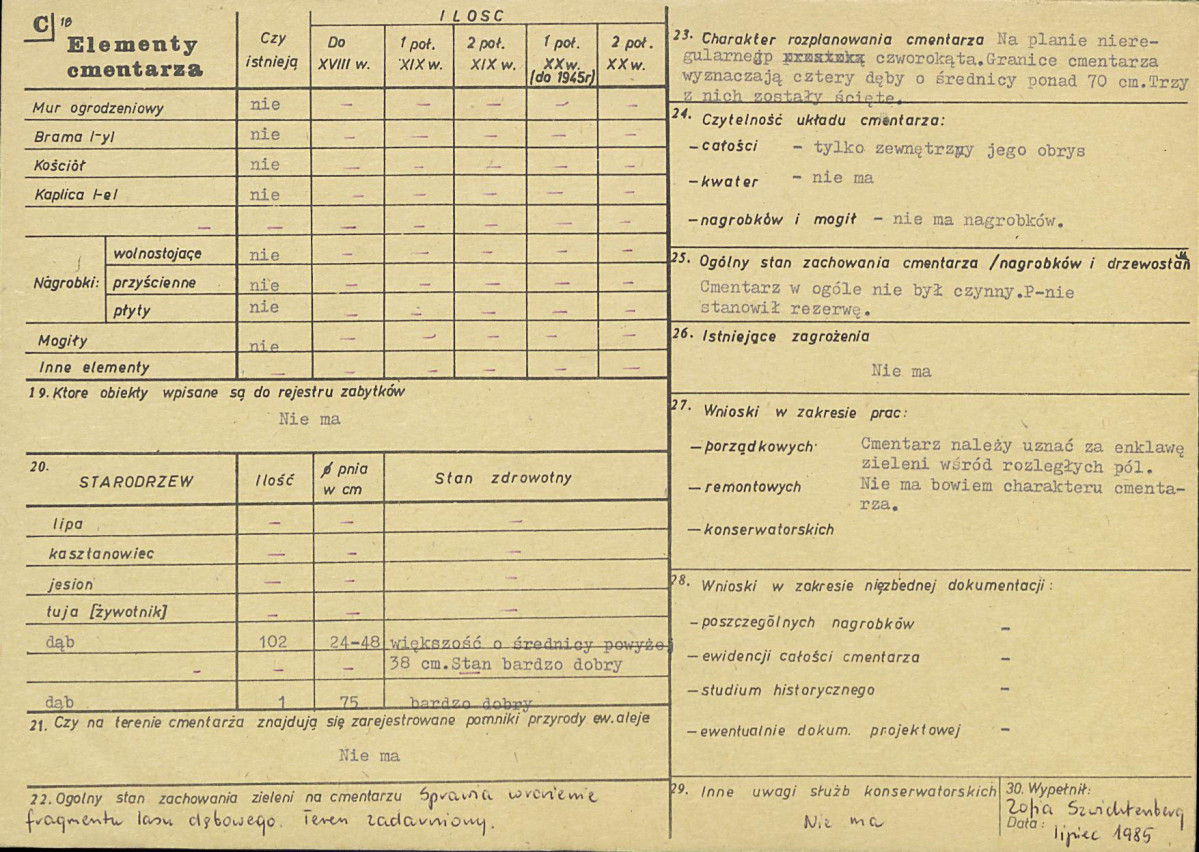 C 18
Elementy cmentarza
Czy istnieją
ILOSC
Do XVIII w.
1 poł. XIX w.
2 poł. XIX w.
1 poł. XX w. (do 1945r)
2 poł. XX w.
Mur ogrodzeniowy nie – – – – –
Brama I-yl nie – – – – –
Kościół nie – – – – –
Kaplica I-el nie – – – – –
– – – – – – –
Nagrobki:
wolnostojące nie – – – – –
przyścienne nie – – – – –
płyty nie – – – – –
Mogiły nie – – – – –
Inne elementy – – – – – –
19. Ktore obiekty wpisane są do rejestru zabytków
Nie ma
20.
STARODRZEW Ilość ø pnia w cm Stan zdrowotny
lipa – – –
kasztanowiec – – –
jesion – – –
tuja [żywotnik] – – –
dąb 102 24-48 większość o średnicy powyżej
– – – 38 cm.Stan bardzo dobry
dąb 1 75 bardzo dobry
21. Czy na terenie cmentarza znajdują się zarejestrowane pomniki przyrody ew.aleje
Nie ma
22. Ogolny stan zachowania zieleni na cmentarzu Sprawia wrażenie
fragmentu lasu dębowego. Teren zadarniony.
23. Charakter rozplanowania cmentarza Na planie niere-
gularnegp czworokąta.Granice cmentarza
wyznaczają cztery dęby o średnicy ponad 70 cm.Trzy
z nich zostały ścięte.
24. Czytelność układu cmentarza:
– całości – tylko zewnętrzny jego obrys
– kwater – nie ma
– nagrobków i mogił – nie ma nagrobków.
25. Ogólny stan zachowania cmentarza /nagrobków i drzewostan
Cmentarz w ogóle nie był czynny.P-nie
stanowił rezerwę.
26. Istniejące zagrożenia
Nie ma
27. Wnioski w zakresie prac:
– porządkowych Cmentarz należy uznać za enklawę
zieleni wśród rozległych pól.
– remontowych Nie ma bowiem charakteru cmenta-
rza.
– konserwatorskich
28. Wnioski w zakresie niezbednej dokumentacji:
– poszczególnych nagrobków –
– ewidencji całości cmentarza –
– studium historycznego –
– ewentualnie dokum. projektowej –
29. Inne uwagi służb konserwatorskich
Nie ma
30. Wypełnił:
Zofia Szwichtenberg
Data: lipiec 1985